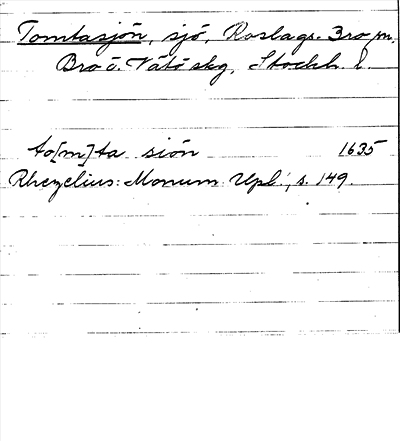 Tomtasjön, sjö, Roslags-Bro sn.
Bro ö. Vätö skg, Stockh. l.
to[m]ta siön 1635
Rhezelius: Monum Upl., s. 149.